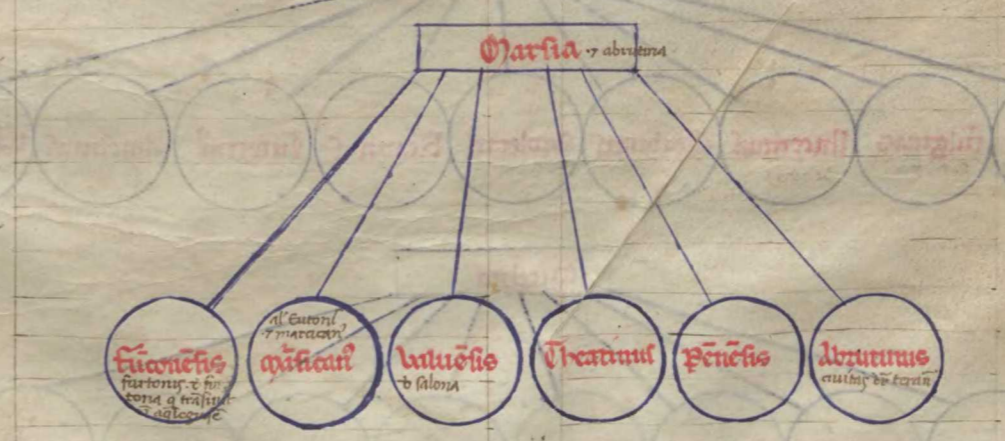 Marsia ⁊ abrutina
Furconēsis
furconis ⁊ fur
conia q̄ trāsiuit
ī aq̄legiēsē
al' Eutonī
⁊ matican'
Mʼsican'
Valuēsis
ł salona
Theatinus
Pēnēsis
Abrutinus
ciuitas dr̄ terañ